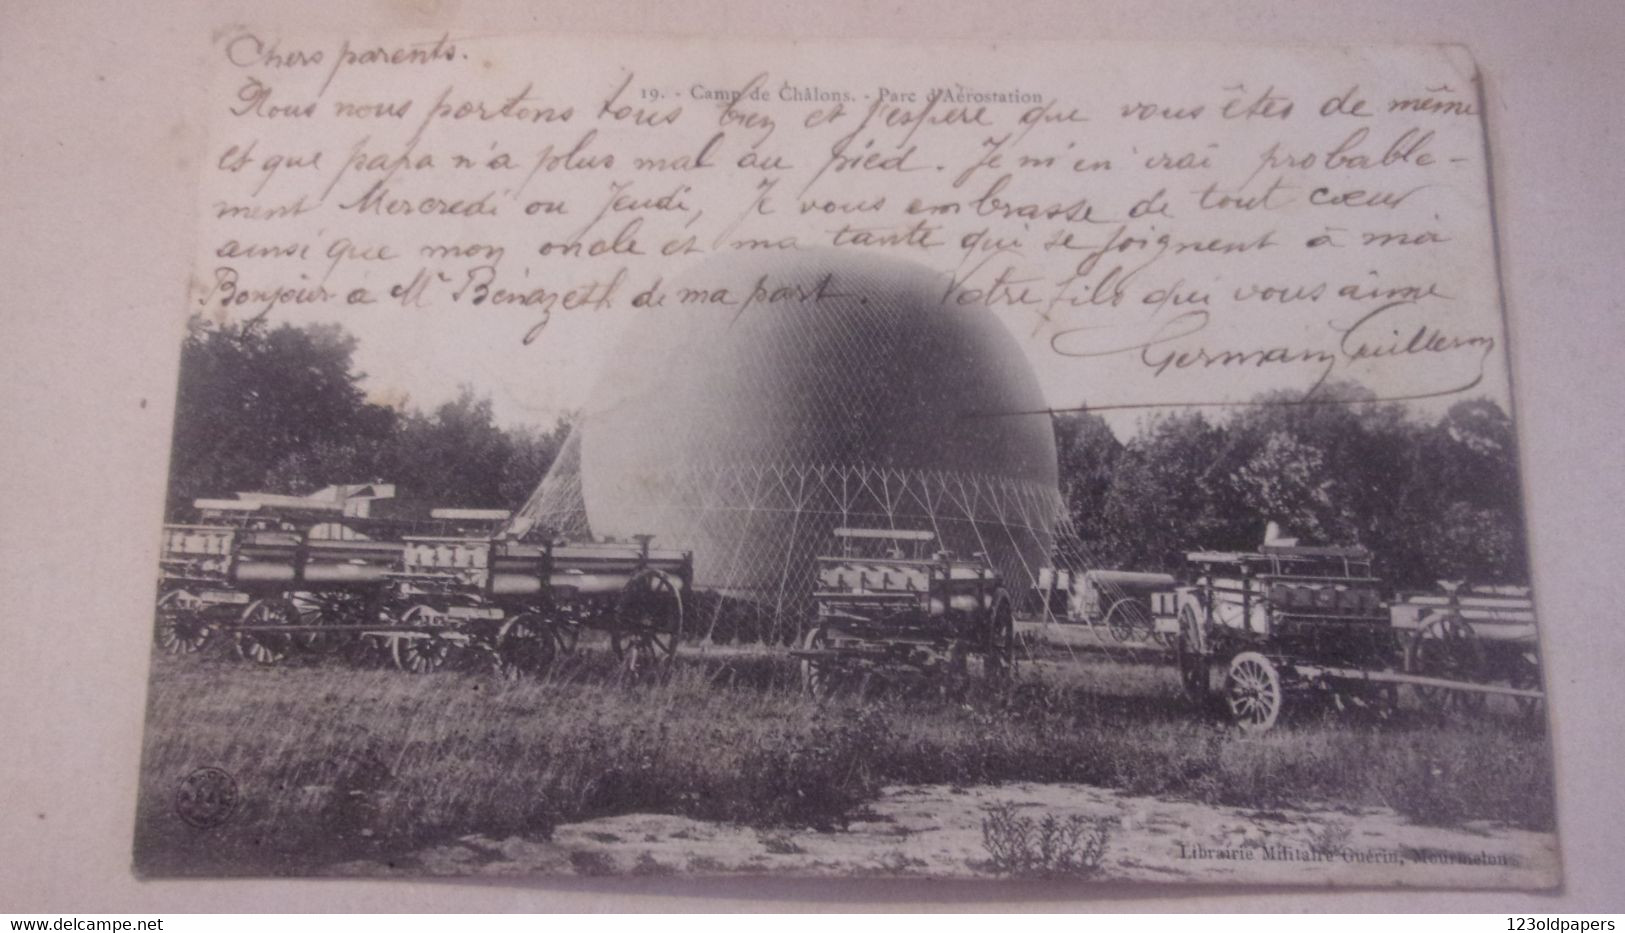 Chers parents.
19. - Camp de Châlons. - Parc d'Aérostation
Nous nous portons tous bien et j'espère que vous êtes de même
et que papa n'a plus mal au pied. Je m'en irai probable-
ment Mercredi ou Jeudi, Je vous embrasse de tout coeur
ainsi que mon oncle et ma tante qui se joignent à moi
Bonjour à Mr Bénazeth de ma part. Votre fils qui vous aime
Germain Guilleron
Librairie Militaire Guérin, Mourmelon
delcampe.net
123oldpapers